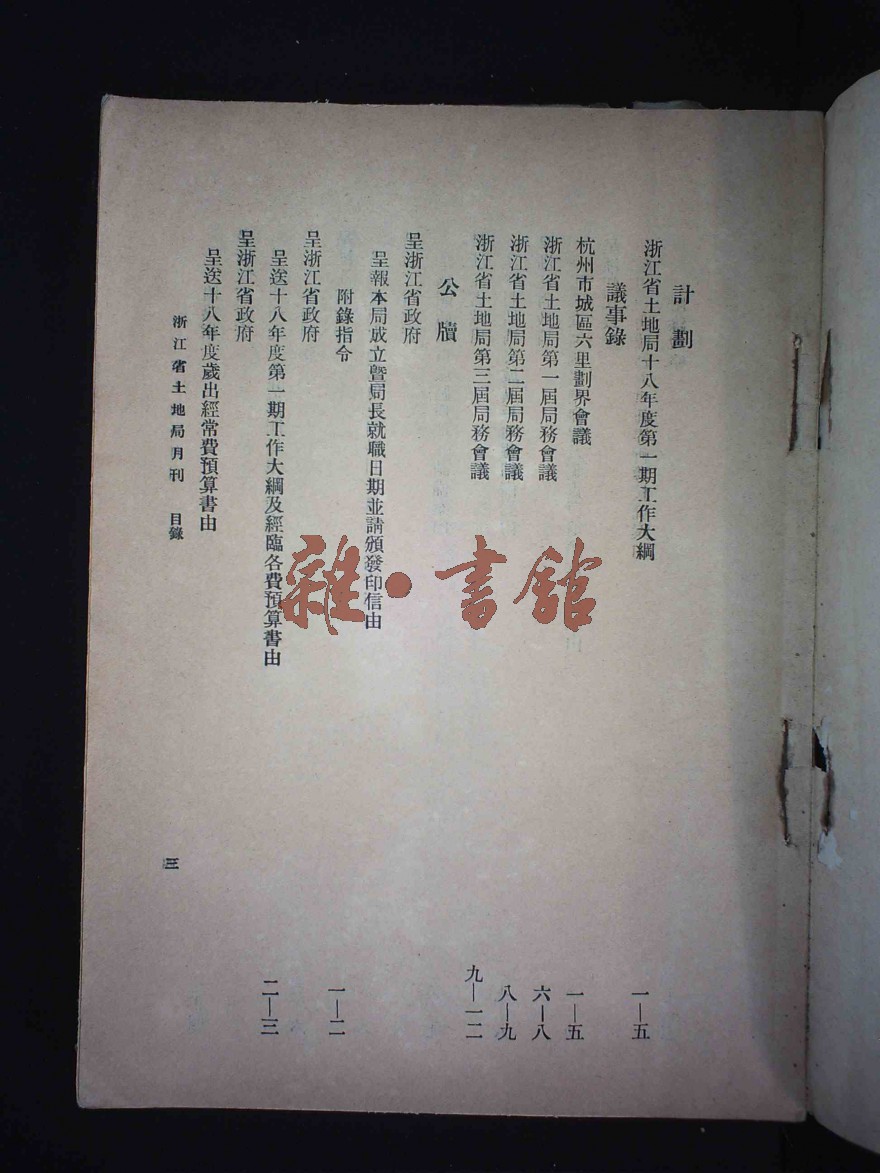 計劃
浙江省土地局十八年度第一期工作大綱
一—五
議事錄
杭州市城區六里劃界會議
一—五
浙江省土地局第一屆局務會議
六—八
浙江省土地局第二屆局務會議
八—九
浙江省土地局第三屆局務會議
九—一二
公牘
呈浙江省政府
呈報本局成立暨局長就職日期並請頒發印信由
附錄指令
一—二
呈浙江省政府
呈送十八年度第一期工作大綱及經臨各費預算書由
二—三
呈浙江省政府
呈送十八年度歲出經常費預算書由
浙江省土地局月刊 目錄
三
雜·書館